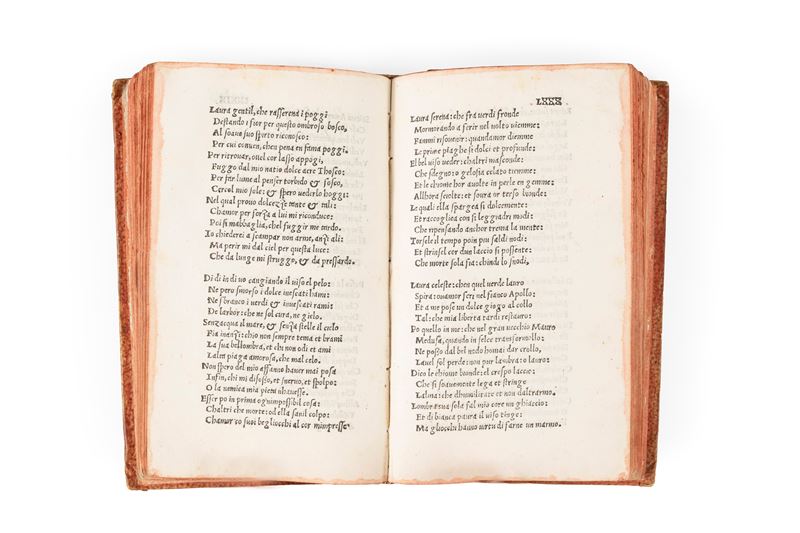 Laura gentil, che rasserena i poggi
Destando i fior per questo ombroso bosco,
Al soaue suo spirto riconosco:
Per cui conuen, chen pena en fama poggi.
Per ritrouar, ouel cor lasso appoggi,
Fuggo dal mio natio dolce aere Thosco:
Per far lume al penser torbido & fosco,
Cerco l mio sole: & spero uederlo hoggi:
Nel qual prouo dolcezze tante & tali:
Chamor per forza a lui mi riconduce:
Poi si mabbaglia, chel fuggir me tardo.
Io chiederei a scampar non arme, anzi ali:
Ma perir mi dal ciel per questa luce:
Che da lunge mi struggo, & da press ardo.
Di di in di uo cangiando il uiso el pelo:
Ne pero smorso i dolce inescati hami:
Ne sbranco i uerdi & inuescati rami:
De larbor: che ne sol cura, ne gielo.
Senzacqua il mare, & senza stelle il cielo
Fia inanzi: chio non sempre tema et brami
La sua bellombra, et chi non odi et ami
Lalta piaga amorosa, che mal celo.
Non spero del mio affanno hauer mai posa
Infin, chi mi disosso, et sneruo, et spolpo:
O la nemica mia pieta nhauesse.
Esser po in prima ognimpossibil cosa:
Chaltri che morte: od ella sanil colpo:
Chamor co suoi begliocchi al cor mimpresse
LXXX
Laura serena: che fra uerdi fronde
Mormorando a ferir nel uolto uiemme:
Fammi risouenir: quandamor diemme
Le prime piaghe si dolci et profonde.
El bel uiso ueder: chaltri masconde:
Che sdegno: o gelosia celato tiemme:
Et le chiome hor auolte in perle en gemme:
Allhora sciolte: et soura or terso bionde:
Le quali ella spargea si dolcemente:
Et raccogliea con si leggiadri modi:
Che ripensando anchor trema la mente:
Torsele il tempo poin piu saldi nodi:
Et strinsel cor dun laccio si possente:
Che morte sola fia: chindi lo snodi.
Laura celeste: chen quel uerde lauro
Spira: ouamor feri nel fianco Apollo:
Et a me pose un dolce giogo al collo
Tal: che mia liberta tardi restauro:
Po quello in me: che nel gran uecchio Mauro
Medusa, quando in selce transformollo:
Ne posso dal bel nodo homai dar crollo,
Lauel sol perde: non pur lambra: o lauro:
Dico le chiome bionde: el crespo laccio:
Che si soauemente lega et stringe
Lalma: che dhumilitate et non daltrarmo.
Lombra sua sola fal mio core un ghiaccio:
Et di bianca paura il uiso tinge:
Ma gliocchi hanno uirtu di farne un marmo.